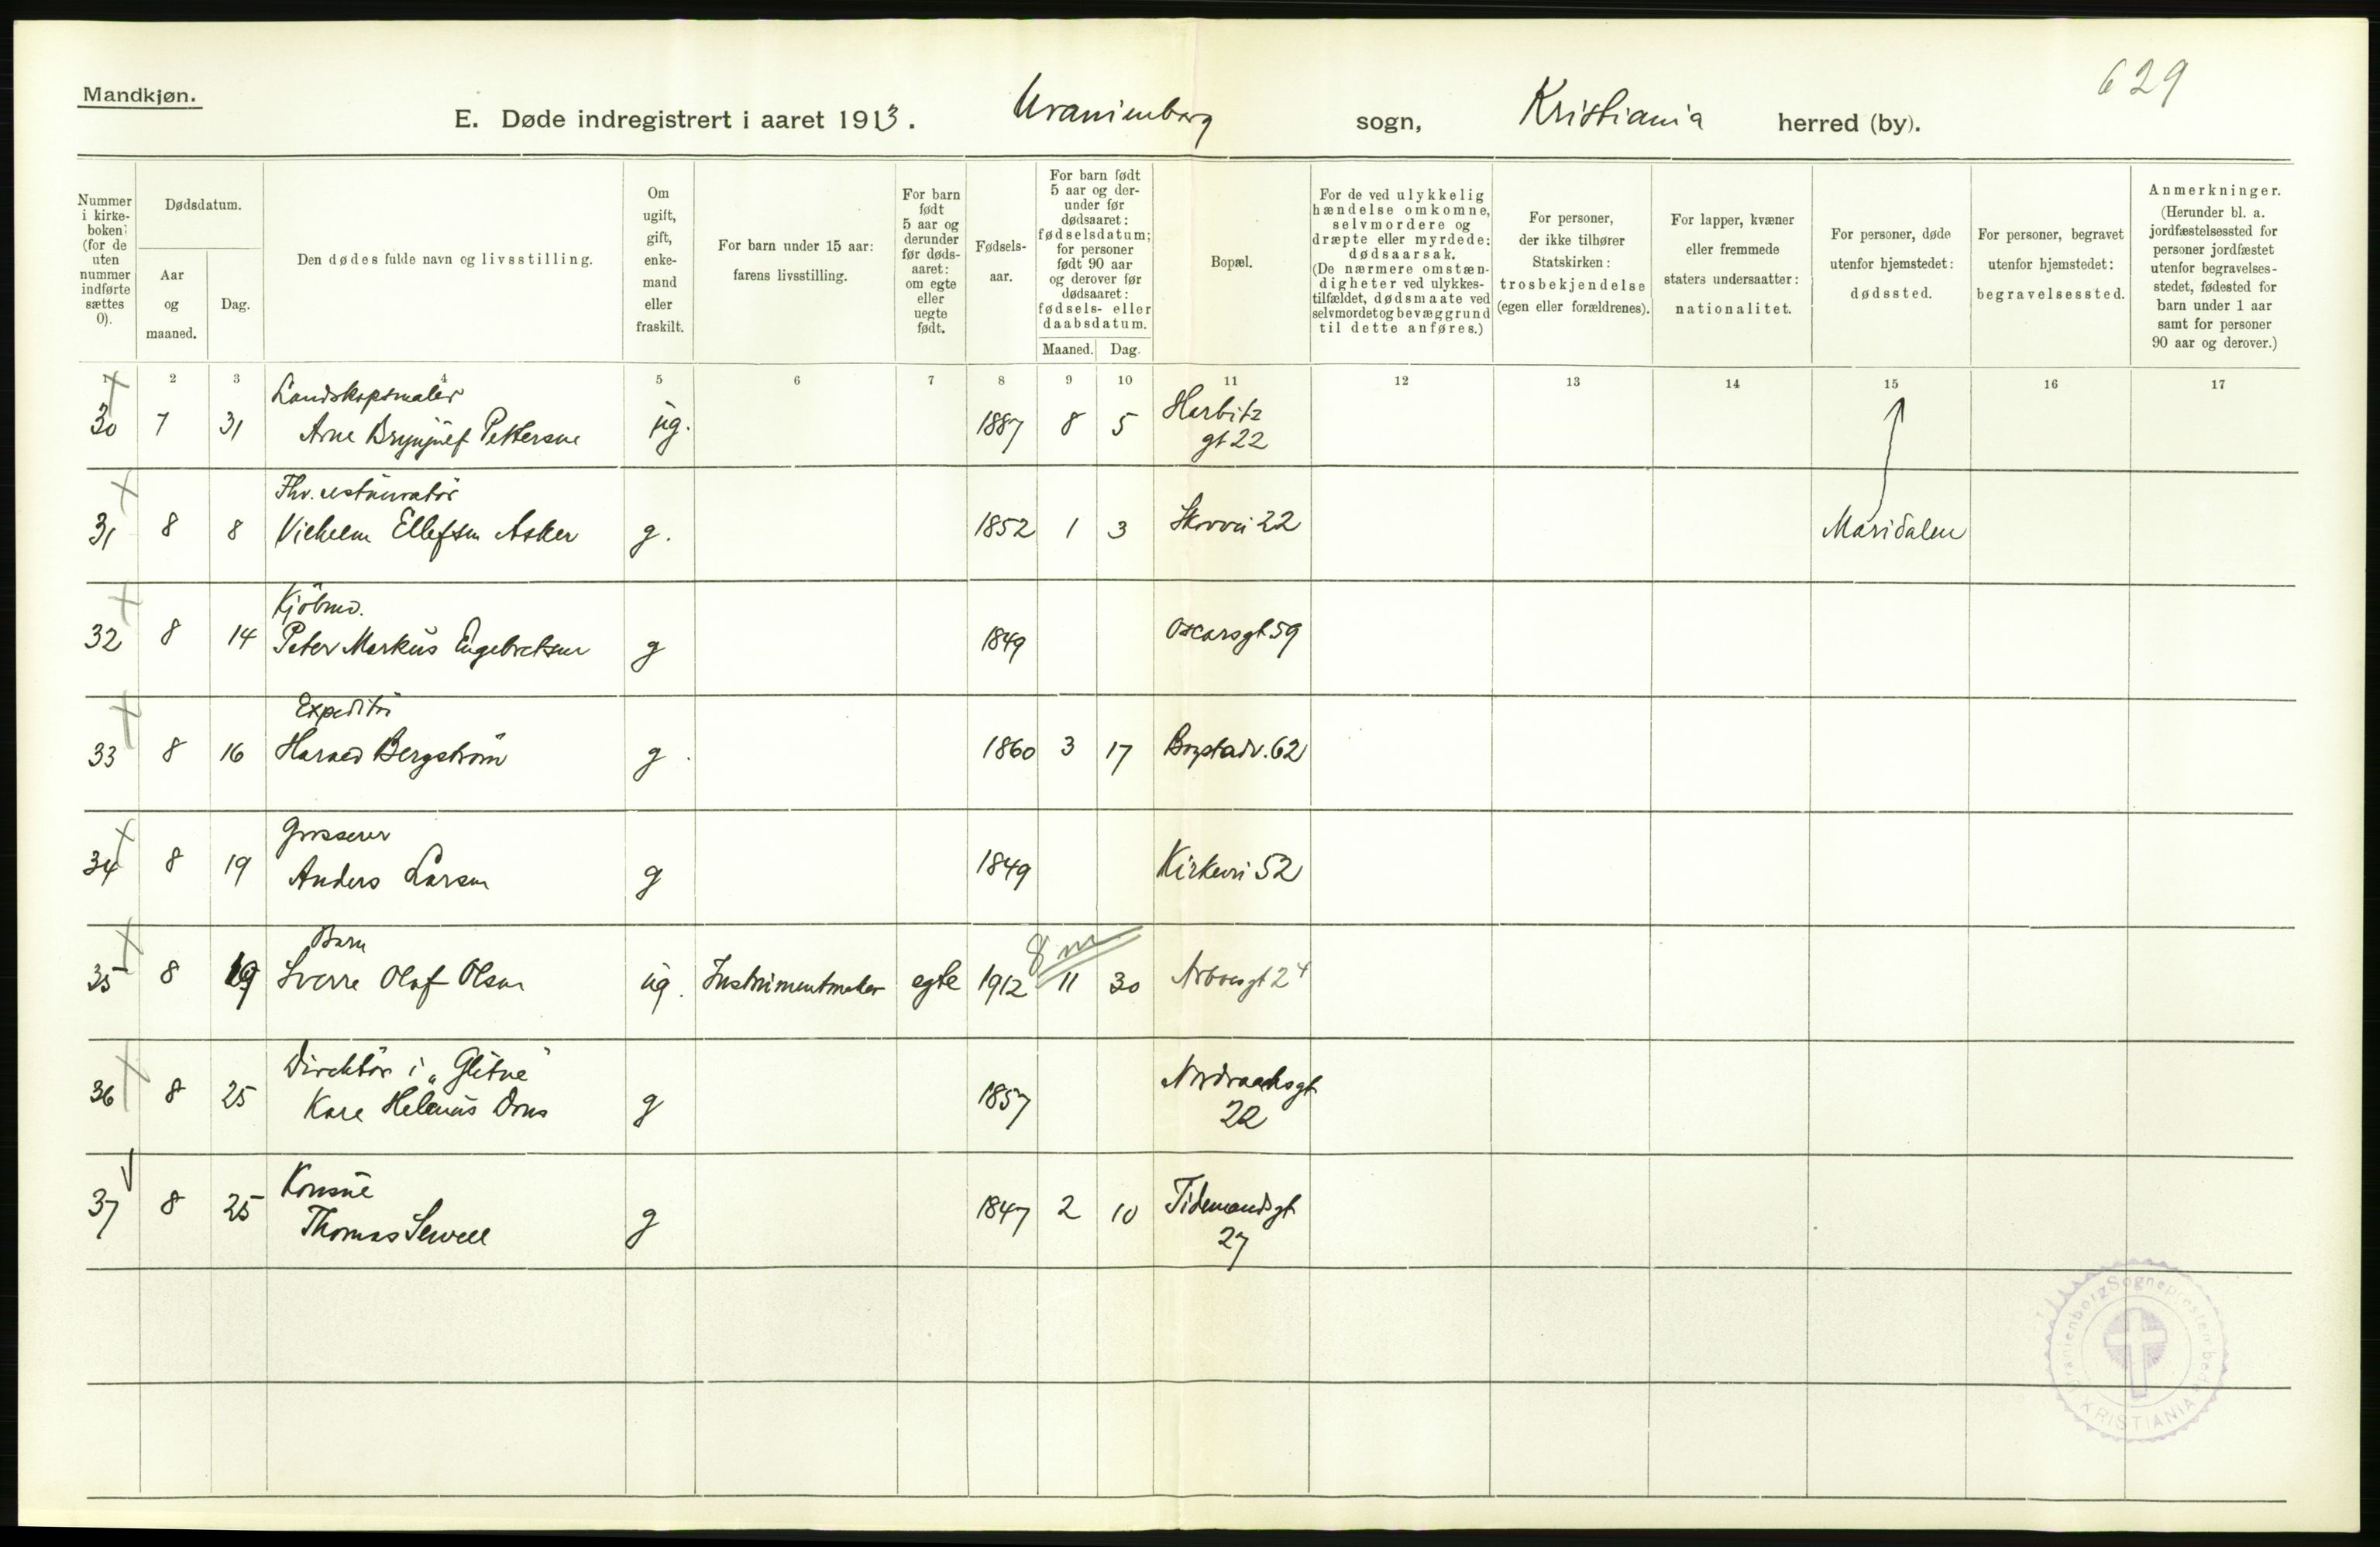 629
Mandkjøn.
E. Døde indregistrert i aaret 1913. Uranienborg sogn, Kristiania herred (by).
Nummer i kirke-boken; (for de uten nummer indførte sættes 0).
Dødsdatum.
Aar og maaned.
Dag.
Den dødes fulde navn og livsstilling.
Om ugift, gift, enke-mand eller fraskilt.
For barn under 15 aar: farens livsstilling.
For barn født 5 aar og derunder før døds-aaret: om egte eller uegte født.
Fødsels-aar.
For barn født 5 aar og der-under før dødsaaret: fødselsdatum; for personer født 90 aar og derover før dødsaaret: fødsels- eller daabsdatum.
Maaned. Dag.
Bopæl.
For de ved ulykkelig hændelse omkomne, selvmordere og dræpte eller myrdede: dødsaarsak. (De nærmere omstæn-digheter ved ulykkes-tilfældet, dødsmaate ved selvmordet og bevæggrund til dette anføres.)
For personer, der ikke tilhører Statskirken: trosbekjendelse (egen eller forældrenes).
For lapper, kvæner eller fremmede staters undersaatter: nationalitet.
For personer, døde utenfor hjemstedet: dødssted.
For personer, begravet utenfor hjemstedet: begravelsessted.
Anmerkninger. (Herunder bl. a. jordfæstelsessted for personer jordfæstet utenfor begravelses-stedet, fødested for barn under 1 aar samt for personer 90 aar og derover.)
2 3 4 5 6 7 8 9 10 11 12 13 14 15 16 17
Landskapsmaler
30 7 31 Arne Brynjulf Pettersen ug. 1887 8 5 Harbitz
gt 22
Fhv. restauratør
31 8 8 Vilhelm Ellefsen Asker g. 1852 1 3 Skovvei 22 Maridalen
Kjøbmd.
32 8 14 Peter Markus Engebretsen g 1849 Oscarsgt 59
Expeditør
33 8 16 Harald Bergstrøm g 1860 3 17 Bogstadv. 62
Grosserer
34 8 19 Anders Larsen g 1849 Kirkevei 52
Barn 8 m
35 8 19 Sverre Olaf Olsen ug. Instrumentmaker egte 1912 11 30 Arbosgt 24
Direktør i "Glitne"
36 8 25 Kare Helenus Dons g 1857 Nordraachsgt
22
Konsul
37 8 25 Thomas Sewell g 1847 2 10 Tidemandsgt
27
Uranienborg Sogneprestembede
KRISTIANIA